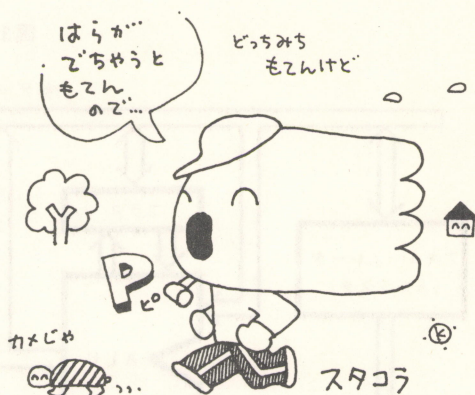 はらが
でちゃうと
もてん
ので…
どっちみち
もてんけど
P ピ
カメじゃ
スタコラ
K